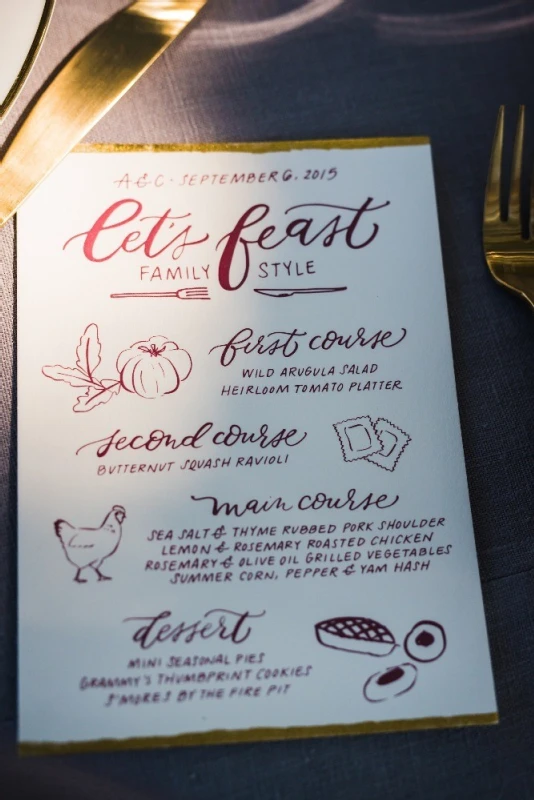 A&C · SEPTEMBER 6. 2015
let's feast
FAMILY STYLE
first course
WILD ARUGULA SALAD
HEIRLOOM TOMATO PLATTER
second course
BUTTERNUT SQUASH RAVIOLI
main course
SEA SALT & THYME RUBBED PORK SHOULDER
LEMON & ROSEMARY ROASTED CHICKEN
ROSEMARY & OLIVE OIL GRILLED VEGETABLES
SUMMER CORN, PEPPER & YAM HASH
dessert
MINI SEASONAL PIES
GRAMMY'S THUMBPRINT COOKIES
S'MORES BY THE FIRE PIT